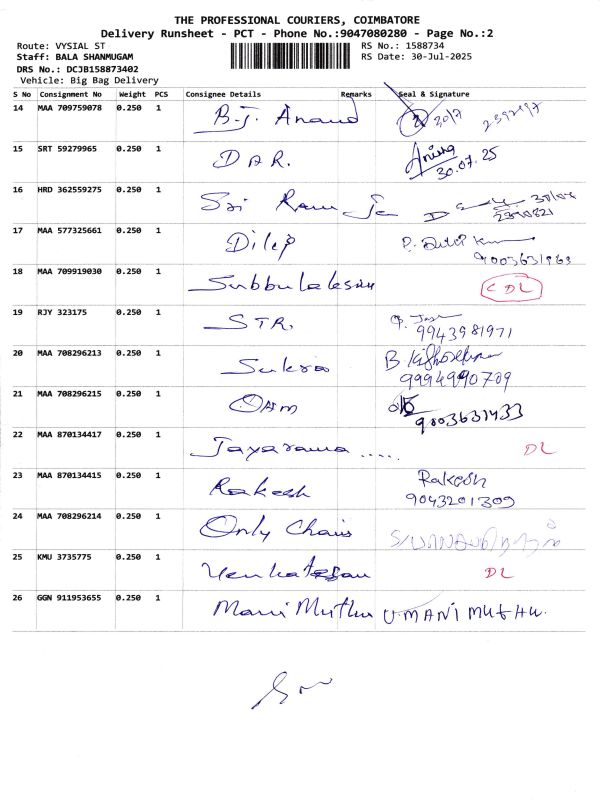 THE PROFESSIONAL COURIERS, COIMBATORE
Delivery Runsheet - PCT - Phone No.:9047080280 - Page No.:2
Route: VYSIAL ST RS No.: 1588734
Staff: BALA SHANMUGAM RS Date: 30-Jul-2025
DRS No.: DCJB158873402
Vehicle: Big Bag Delivery
S No Consignment No Weight PCS Consignee Details Remarks Seal & Signature
14 MAA 709759078 0.250 1 B.J. Anand 30/7
15 SRT 59279965 0.250 1 DAR. Anisha
30.07.25
16 HRD 362559275 0.250 1 Sri Ram
17 MAA 577325661 0.250 1 Dilip P. Dilip
9003631963
18 MAA 709919030 0.250 1 CDL
19 RJY 323175 0.250 1 STR.
9943981971
20 MAA 708296213 0.250 1 B
9994990709
21 MAA 708296215 0.250 1
9003631433
22 MAA 870134417 0.250 1 Jayarama ..... DL
23 MAA 870134415 0.250 1 Rakesh Rakesh
9043201309
24 MAA 708296214 0.250 1 Only Chairs
25 KMU 3735775 0.250 1 Venkatesan DL
26 GGN 911953655 0.250 1 Mani Muthu U MANI MUTHU.